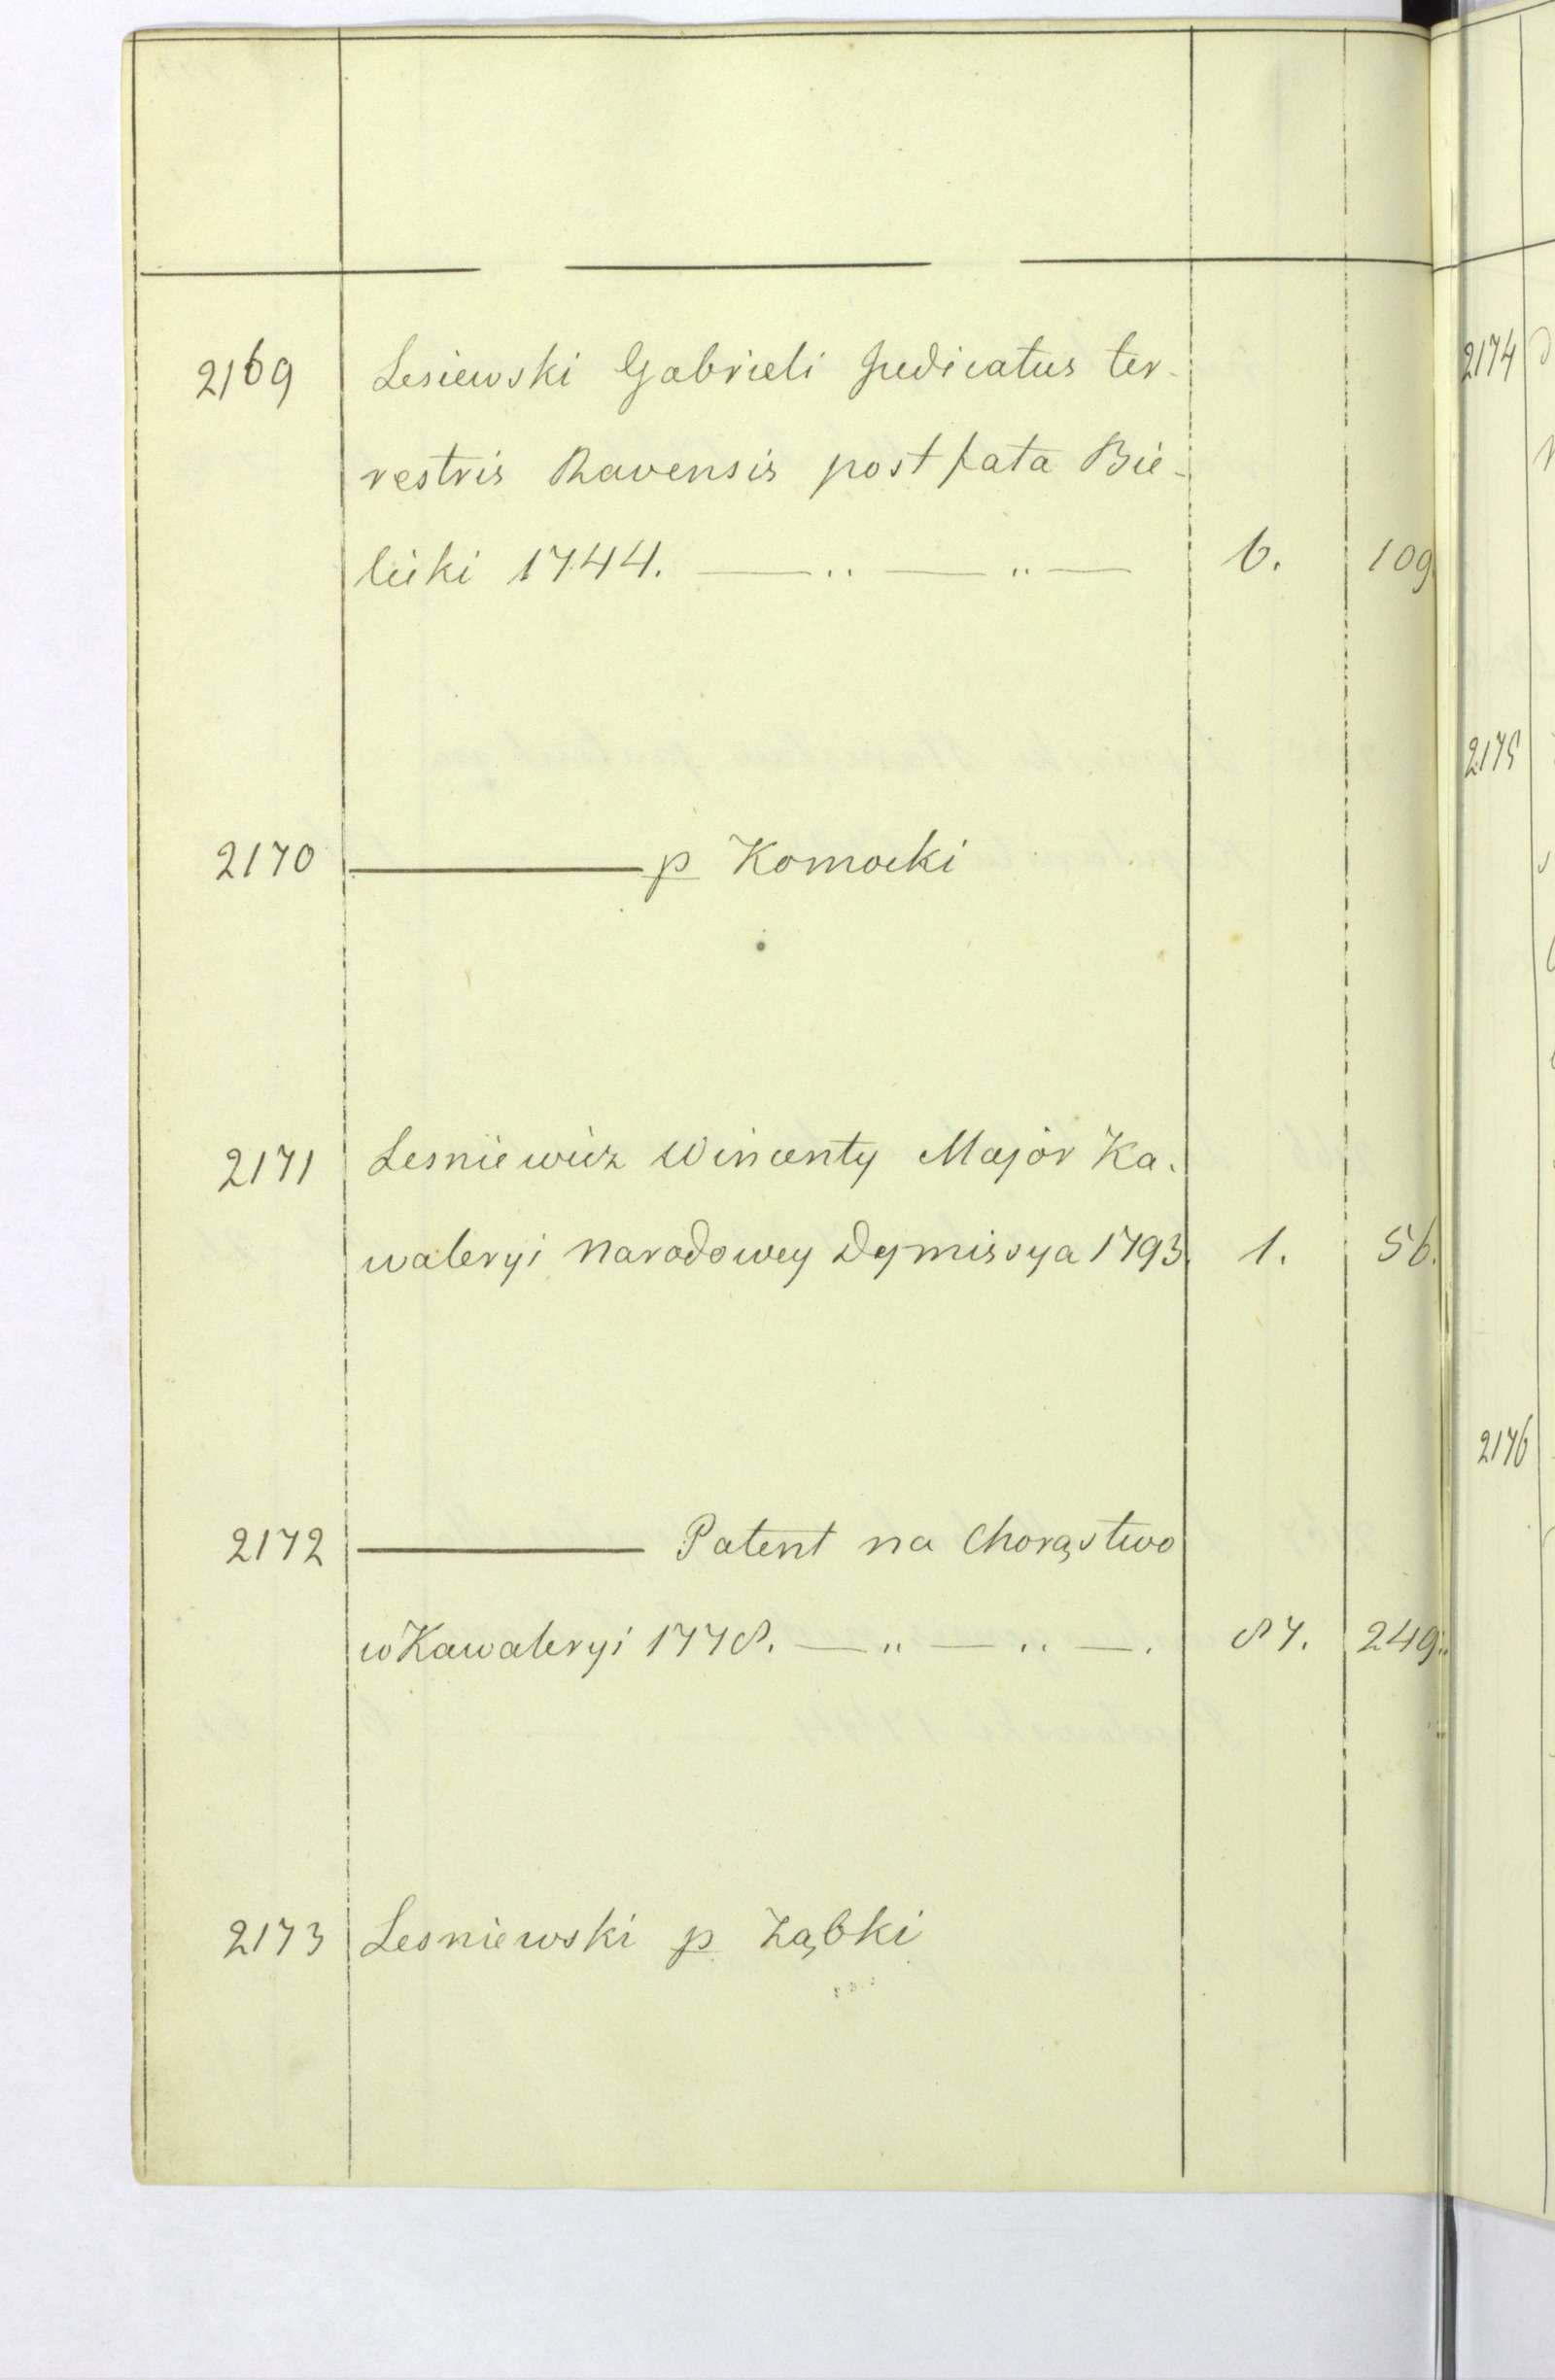 2169 Lesiewski Gabrieli Judicatus ter-
restris Ravensis post fata Bie-
licki 1744. — „ — „ — 6. 109.
2170 ——— p Komocki
2171 Lesniewicz Wincenty Major Ka-
waleryi Narodowey Dymissya 1793. 1. 56.
2172 ——— Patent na Chorąstwo
w Kawaleryi 1778. — „ — „ —. 87. 249.
2173 Lesniewski p Ząbki
2174
2175
2176